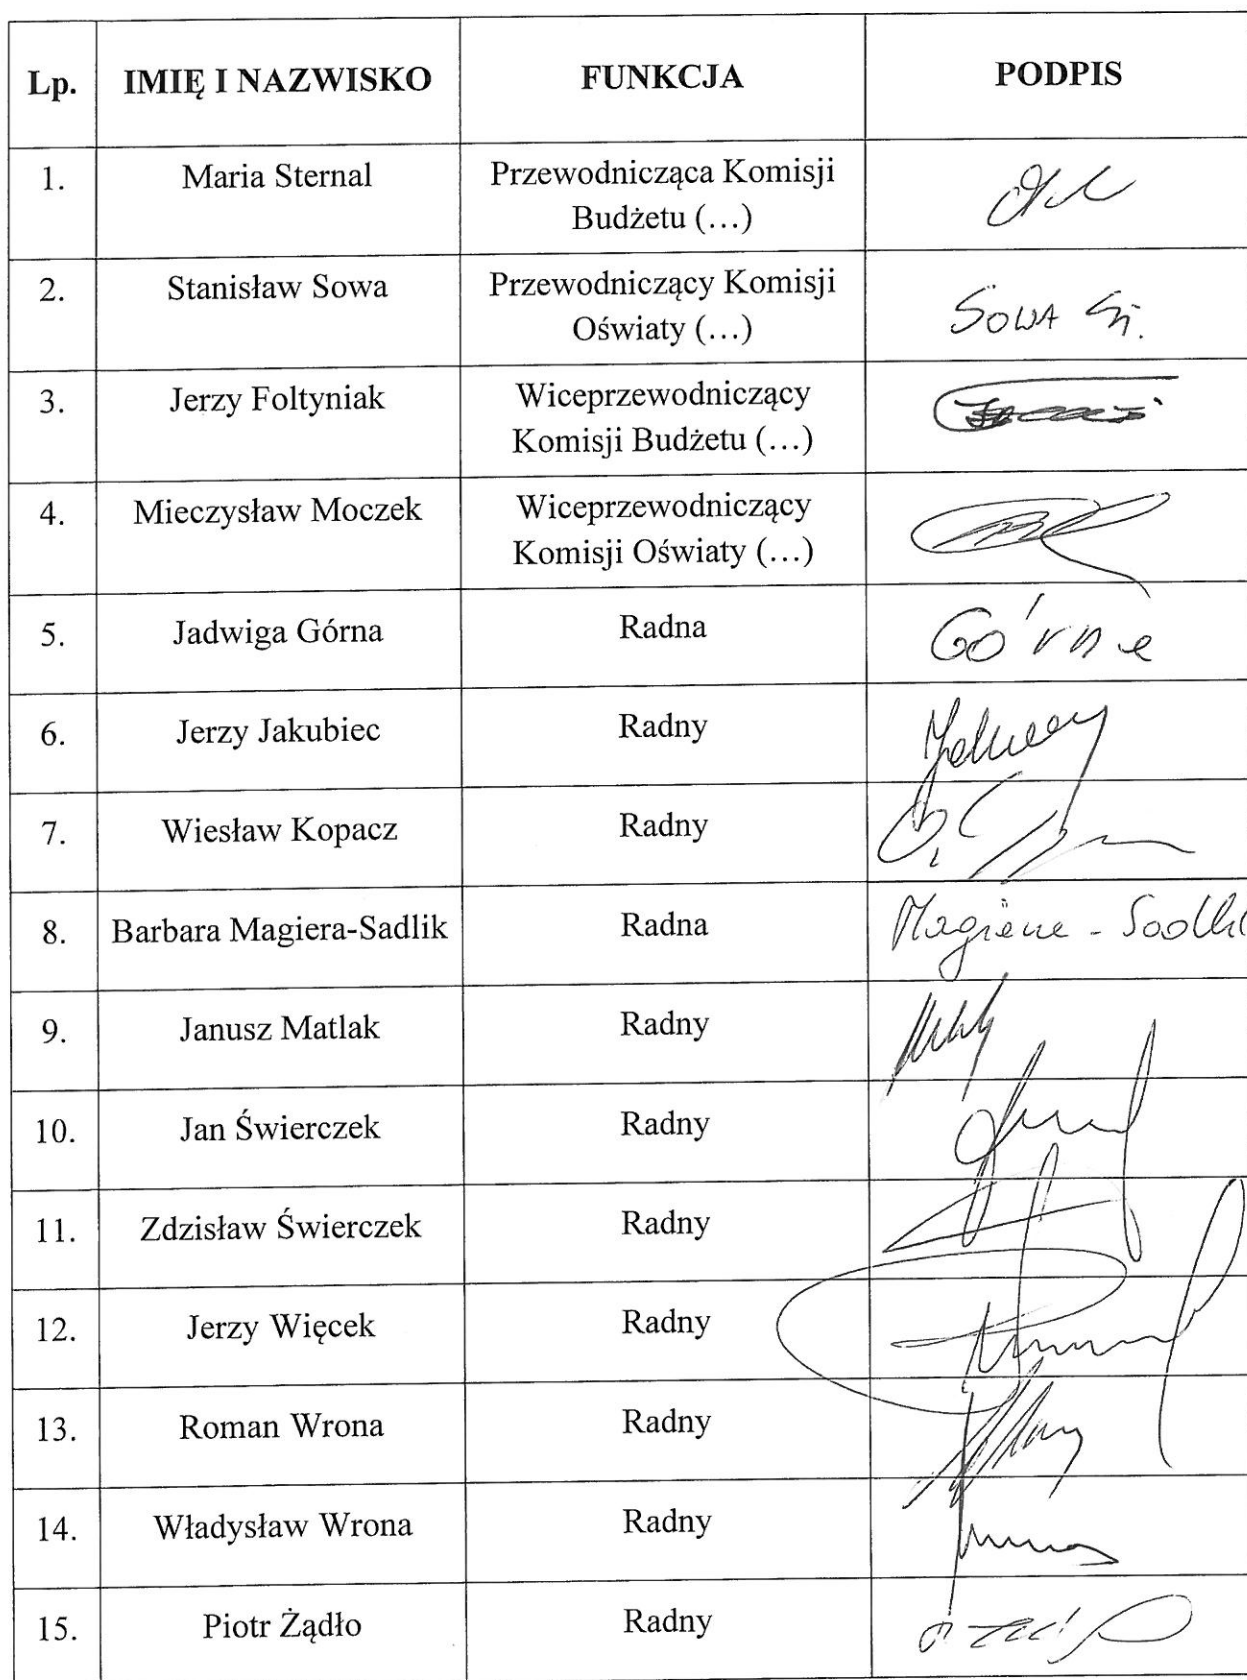 Lp. IMIĘ I NAZWISKO FUNKCJA PODPIS
1. Maria Sternal Przewodnicząca Komisji
Budżetu (…)
2. Stanisław Sowa Przewodniczący Komisji
Oświaty (…) SOWA St.
3. Jerzy Foltyniak Wiceprzewodniczący
Komisji Budżetu (…)
4. Mieczysław Moczek Wiceprzewodniczący
Komisji Oświaty (…)
5. Jadwiga Górna Radna Górna
6. Jerzy Jakubiec Radny
7. Wiesław Kopacz Radny
8. Barbara Magiera-Sadlik Radna Magiera - Sadlik
9. Janusz Matlak Radny
10. Jan Świerczek Radny
11. Zdzisław Świerczek Radny
12. Jerzy Więcek Radny
13. Roman Wrona Radny
14. Władysław Wrona Radny
15. Piotr Żądło Radny